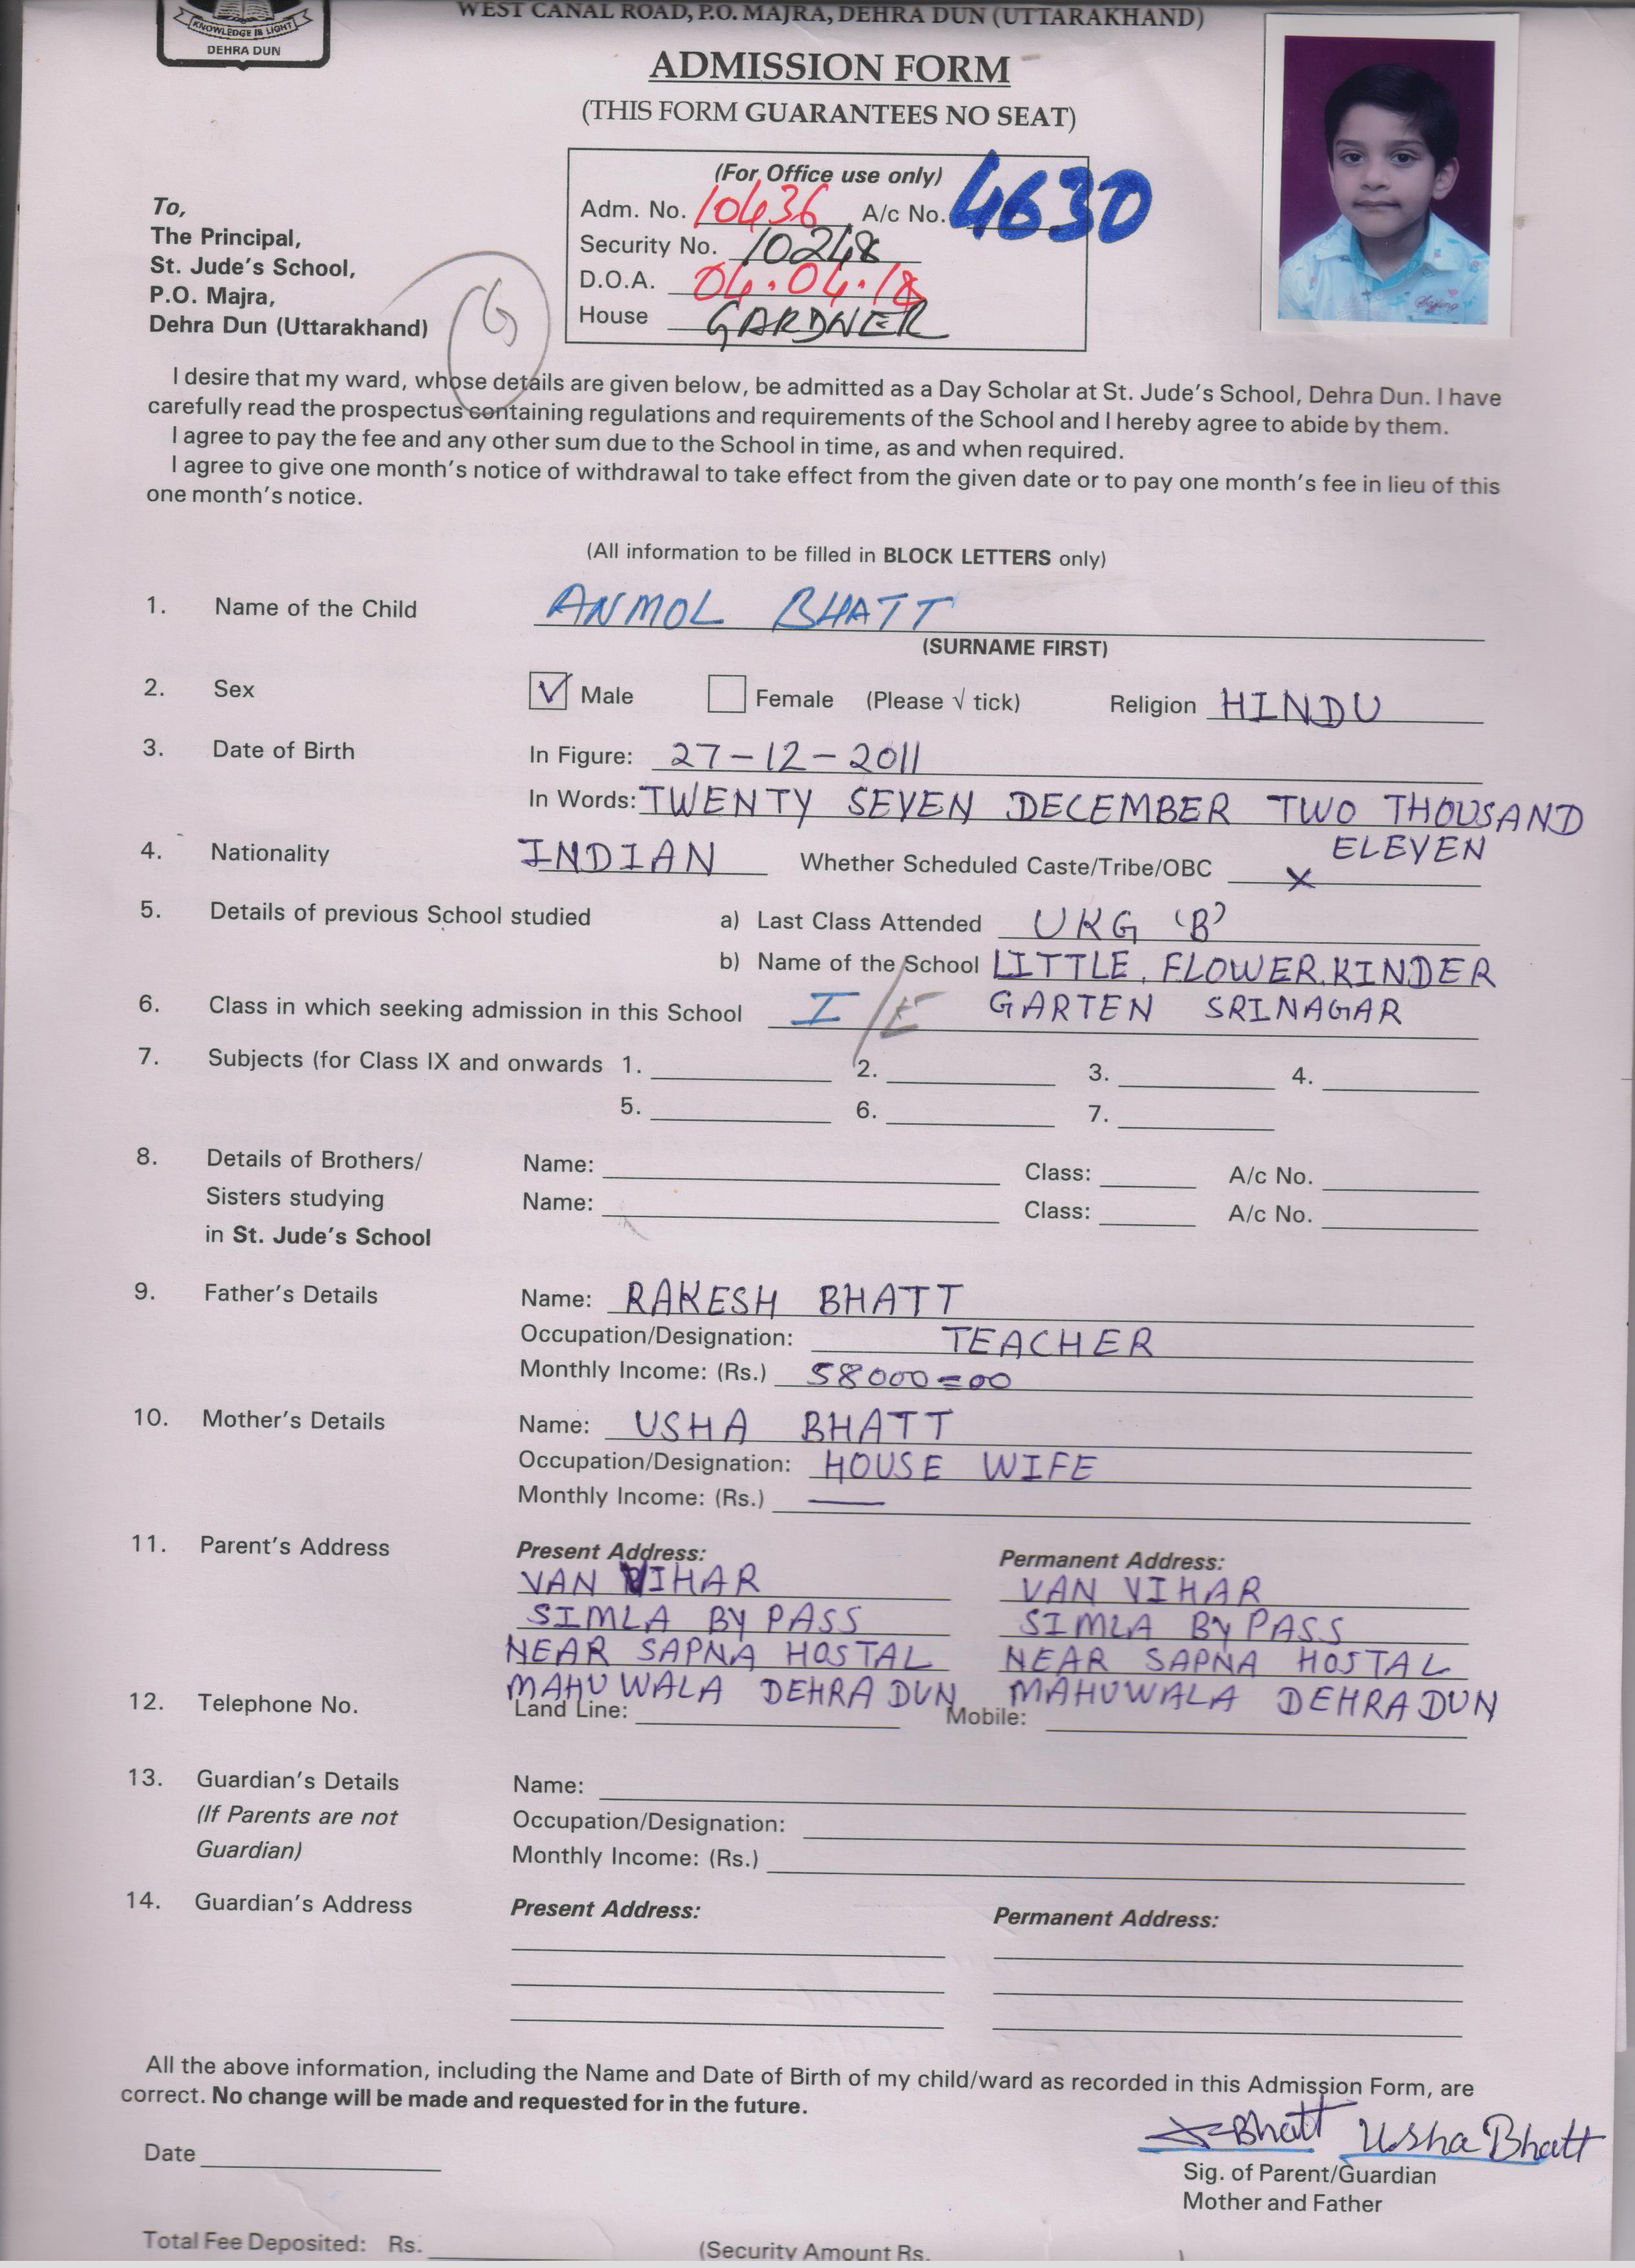 WEST CANAL ROAD, P.O. MAJRA, DEHRA DUN (UTTARAKHAND)
KNOWLEDGE IS LIGHT
DEHRA DUN
ADMISSION FORM
(THIS FORM GUARANTEES NO SEAT)
(For Office use only)
Adm. No. 10436 A/c No. 4630
Security No. 10248
D.O.A. 04.04.18
House GARDNER
To,
The Principal,
St. Jude's School,
P.O. Majra,
Dehra Dun (Uttarakhand)
I desire that my ward, whose details are given below, be admitted as a Day Scholar at St. Jude's School, Dehra Dun. I have
carefully read the prospectus containing regulations and requirements of the School and I hereby agree to abide by them.
I agree to pay the fee and any other sum due to the School in time, as and when required.
I agree to give one month's notice of withdrawal to take effect from the given date or to pay one month's fee in lieu of this
one month's notice.
(All information to be filled in BLOCK LETTERS only)
1. Name of the Child ANMOL BHATT
(SURNAME FIRST)
2. Sex √ Male Female (Please √ tick) Religion HINDU
3. Date of Birth In Figure: 27-12-2011
In Words: TWENTY SEVEN DECEMBER TWO THOUSAND
ELEVEN
4. Nationality INDIAN Whether Scheduled Caste/Tribe/OBC X
5. Details of previous School studied a) Last Class Attended UKG 'B'
b) Name of the School LITTLE. FLOWER.KINDER
GARTEN SRINAGAR
6. Class in which seeking admission in this School I/E
7. Subjects (for Class IX and onwards 1. 2. 3. 4.
5. 6. 7.
8. Details of Brothers/ Name: Class: A/c No.
Sisters studying Name: Class: A/c No.
in St. Jude's School
9. Father's Details Name: RAKESH BHATT
Occupation/Designation: TEACHER
Monthly Income: (Rs.) 58000=00
10. Mother's Details Name: USHA BHATT
Occupation/Designation: HOUSE WIFE
Monthly Income: (Rs.) —
11. Parent's Address Present Address: Permanent Address:
VAN VIHAR VAN VIHAR
SIMLA BY PASS SIMLA BY PASS
NEAR SAPNA HOSTAL NEAR SAPNA HOSTAL
MAHUWALA DEHRADUN MAHUWALA DEHRADUN
12. Telephone No. Land Line: Mobile:
13. Guardian's Details Name:
(If Parents are not Occupation/Designation:
Guardian) Monthly Income: (Rs.)
14. Guardian's Address Present Address: Permanent Address:
All the above information, including the Name and Date of Birth of my child/ward as recorded in this Admission Form, are
correct. No change will be made and requested for in the future.
Bhatt Usha Bhatt
Date
Sig. of Parent/Guardian
Mother and Father
Total Fee Deposited: Rs. (Security Amount Rs.